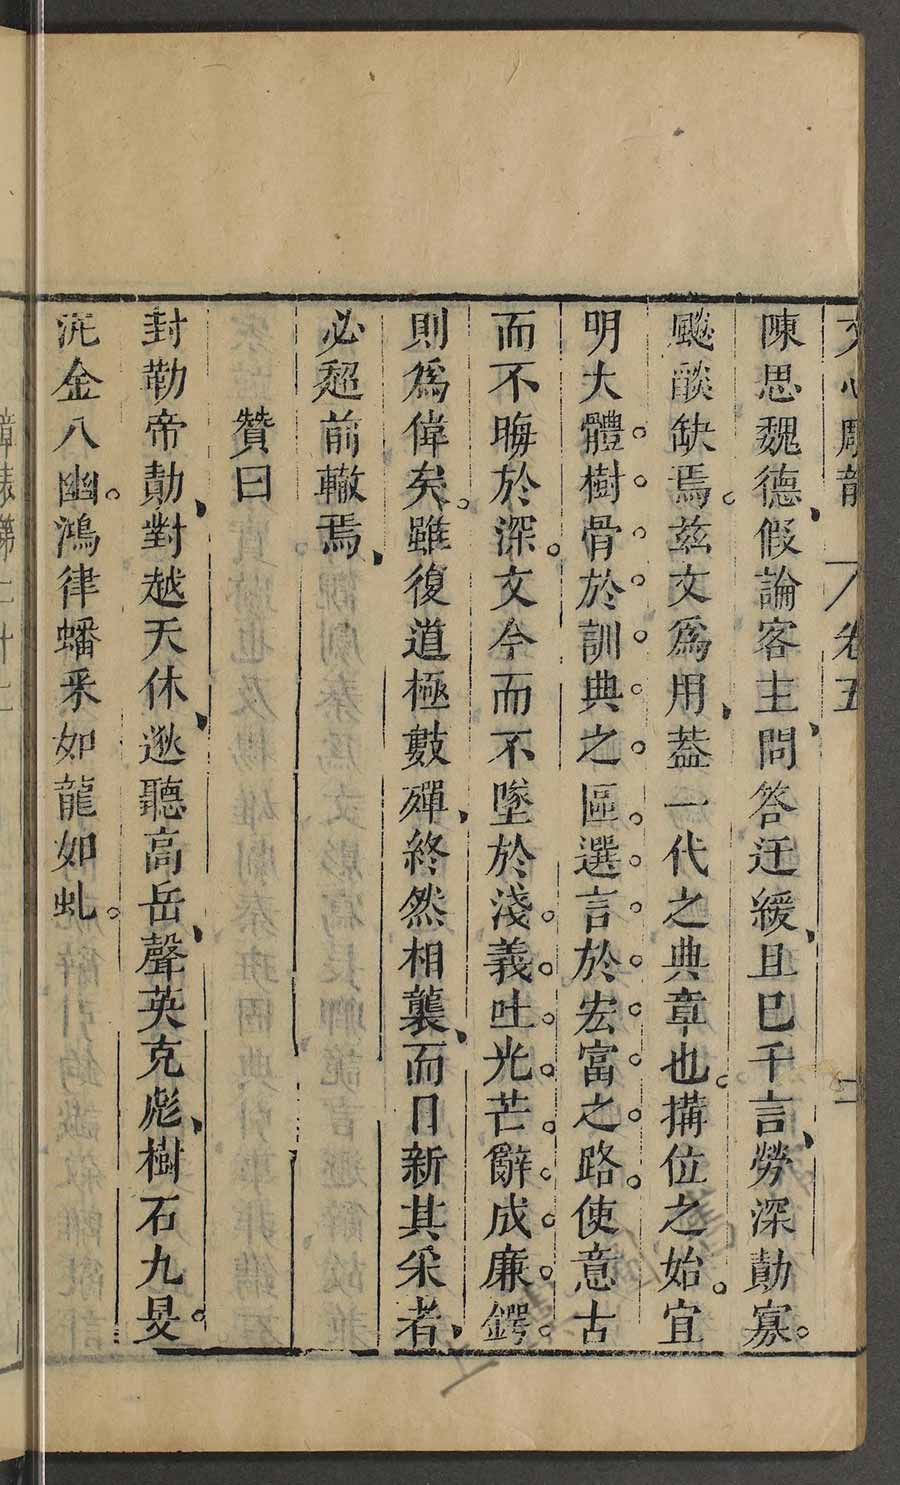 文心雕龍 卷五
陳思魏德假論客主問答迂緩且巳千言勞深勣寡
飈燄缺焉茲文爲用葢一代之典章也搆位之始宜
明大體樹骨於訓典之區選言於宏富之路使意古
而不晦於深文今而不墜於淺義吐光芒辭成廉鍔
則爲偉矣雖復道極數殫終然相襲而日新其采者
必超前轍焉
贊曰
封勒帝勣對越天休逖聽高岳聲英克彪樹石九旻
泥金八幽鴻律蟠采如龍如虬
章表第二十二